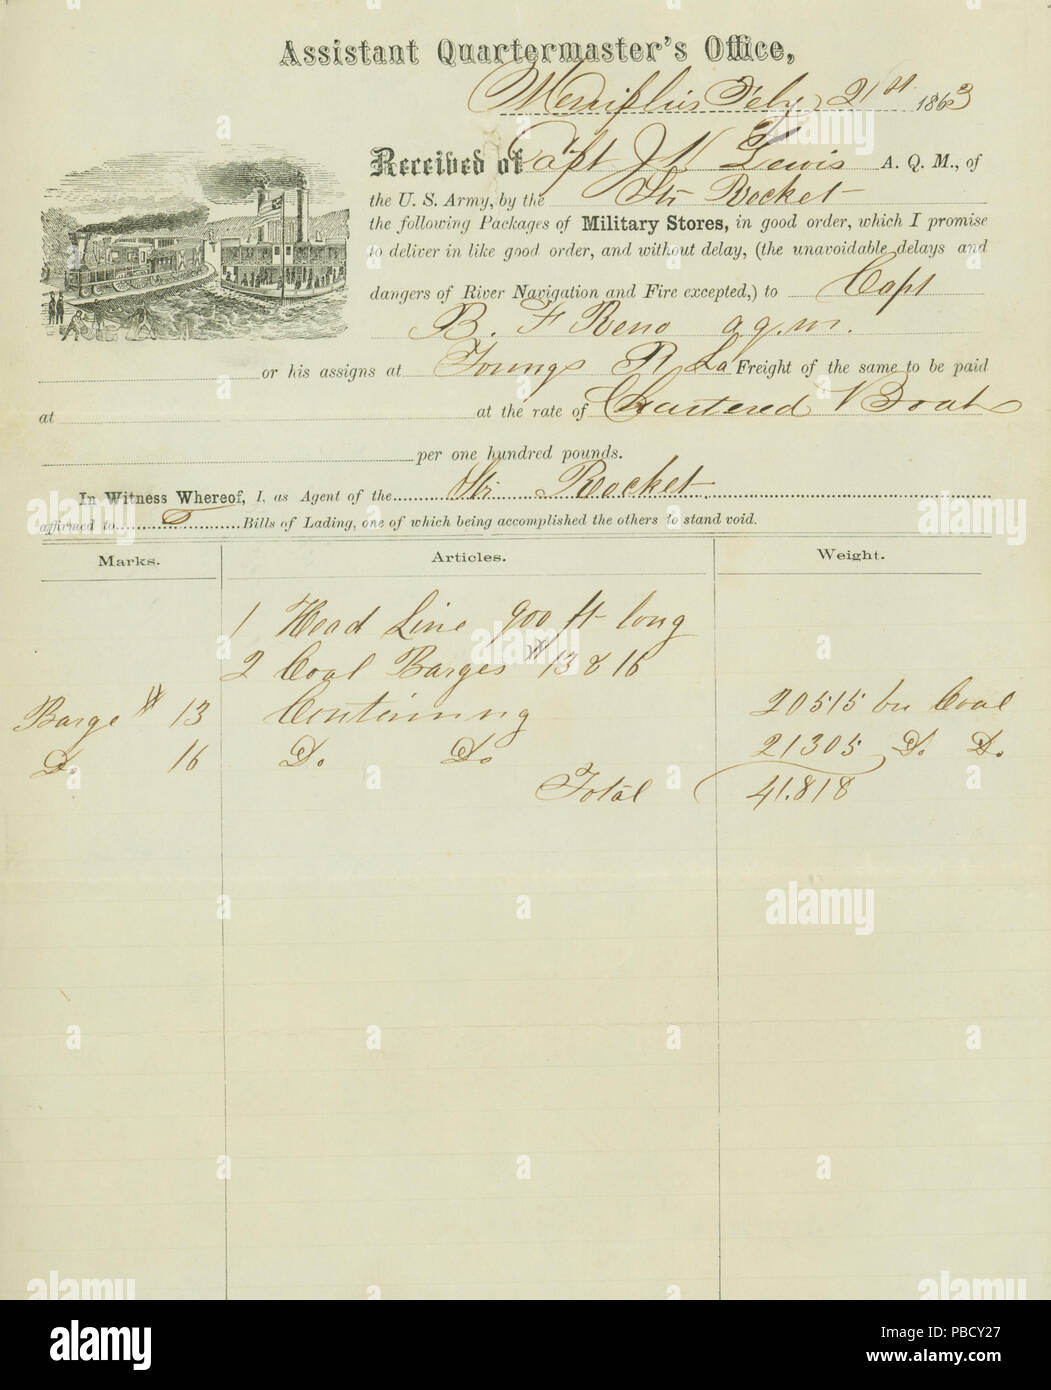 Assistant Quartermaster's Office,
Memphis Feby 21st 1863
Received of Capt J V Lewis A. Q. M., of
the U. S. Army, by the Str Rocket
the following Packages of Military Stores, in good order, which I promise
to deliver in like good order, and without delay, (the unavoidable delays and
dangers of River Navigation and Fire excepted,) to Capt
B. F Reno a q. m.
or his assigns at Youngs P. La Freight of the same to be paid
at at the rate of Chartered Boat
per one hundred pounds.
In Witness Whereof, I, as Agent of the Str Rocket
affirmed to 5 Bills of Lading, one of which being accomplished the others to stand void.
Marks. Articles. Weight.
1 Head Line 900 ft long
2 Coal Barges # 13 & 16
Barge # 13 Containing 20515 bu Coal
Do 16 Do Do 21305 Do Do
Total 41.818
alamy
a
alamy
Image ID: PBCY27
www.alamy.com